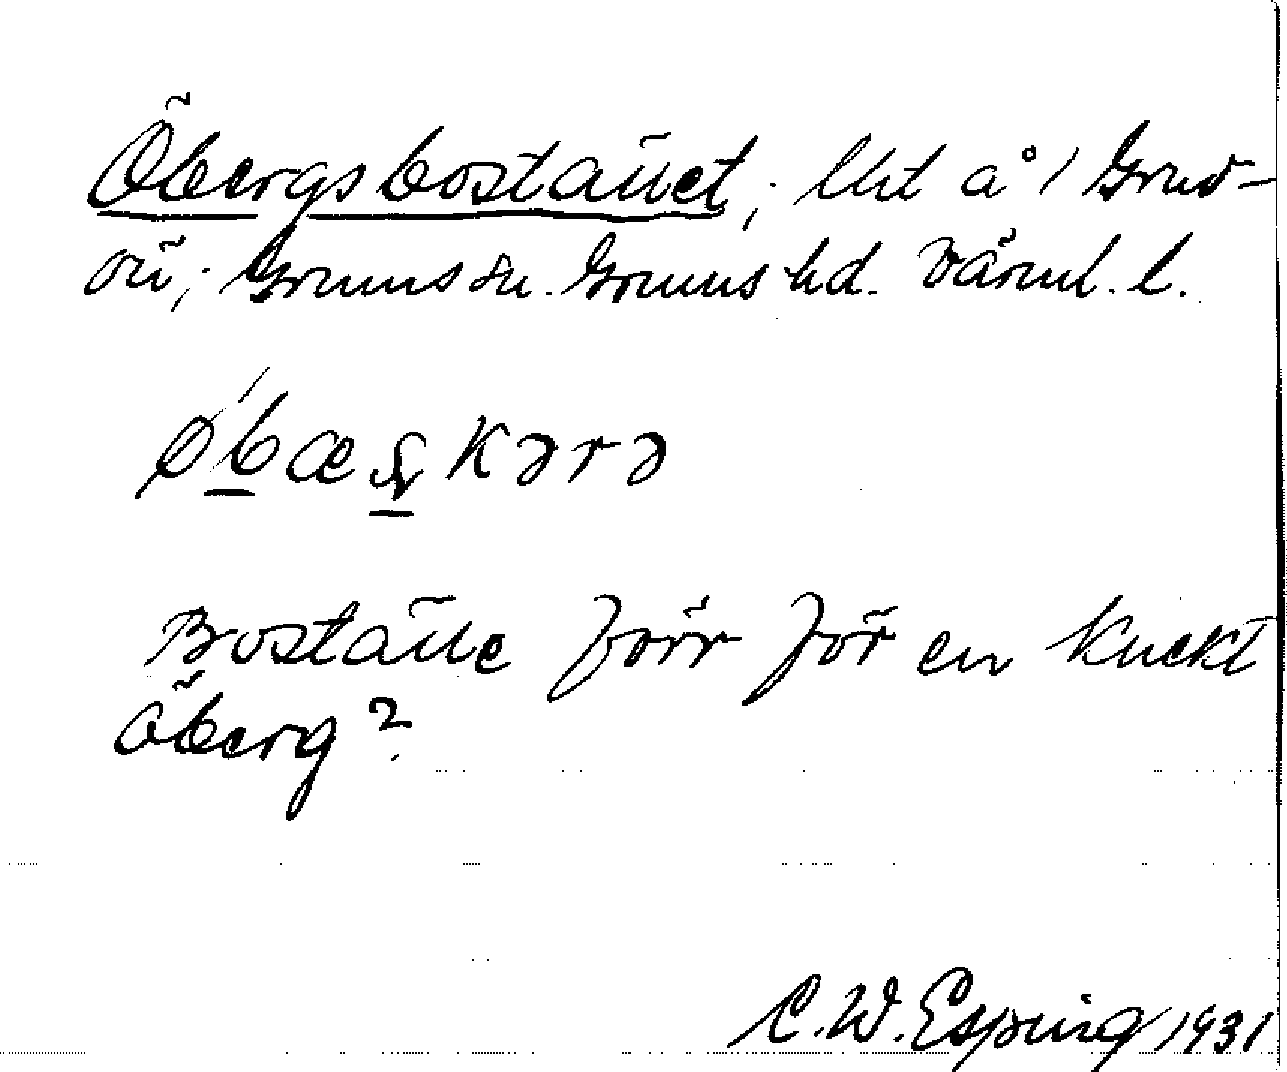 Öbergsbostället; lht å / Gruv-
ön; Grums sn. Grums hd. Värml. l.
Øbæskərə
Boställe förr för en knekt
Öberg?
C. W. Esping 1931